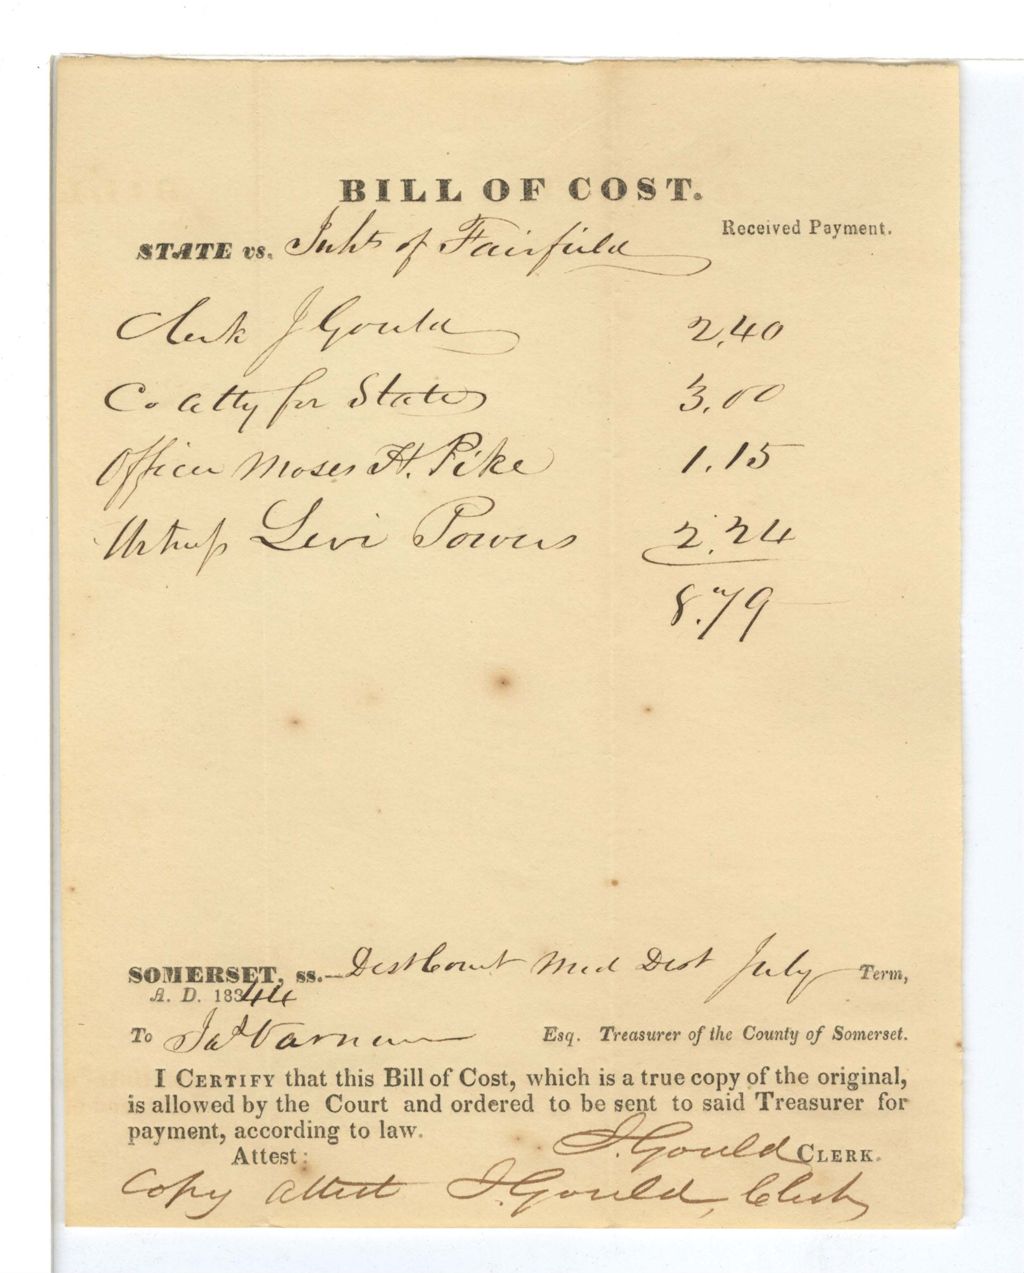 BILL OF COST.
Received Payment.
STATE vs. Inhts of Fairfield
Clerk J Gould 2.40
Co Atty for State 3.00
Officer Moses H. Pike 1.15
Witness Levi Powers 2.24
8.79
SOMERSET, ss.—Dist Court Mid Dist July Term,
A. D. 18344
To Jas Varnum Esq. Treasurer of the County of Somerset.
I CERTIFY that this Bill of Cost, which is a true copy of the original,
is allowed by the Court and ordered to be sent to said Treasurer for
payment, according to law.
Attest: J. Gould CLERK.
Copy Attest J. Gould, Clerk